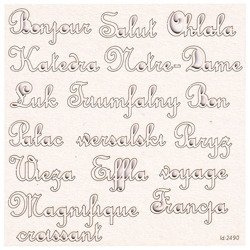 Bonjour Salut Ohlala
Katedra Notre-Dame
Łuk Triumfalny Bon
Pałac wersalski Paryż
Wieża Eiffla voyage
Magnifique Francja
croissant
id-2490